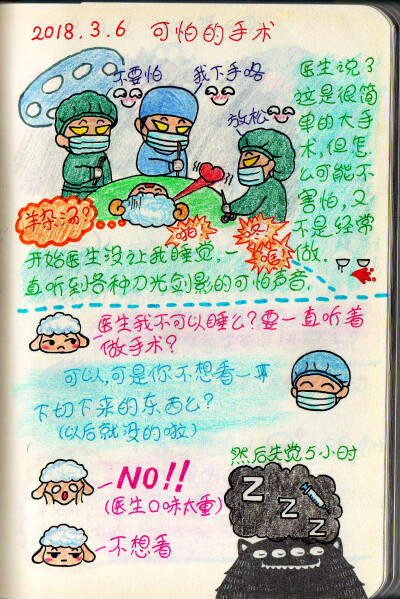 2018.3.6 可怕的手术
不要怕
我下手咯
放松
医生说了
这是很简
单的大手
术,但怎
么可能不
害怕,又
不是经常
做.
羊杂汤?
啪
咚
嗞
开始医生没让我睡觉,一
直听到各种刀光剑影的可怕声音.
医生我不可以睡么?要一直听着
做手术?
可以,可是你不想看一
下切下来的东西么?
(以后就没的啦)
NO!!
(医生口味太重)
不想看
然后失觉5小时
Z
Z
Z
Z